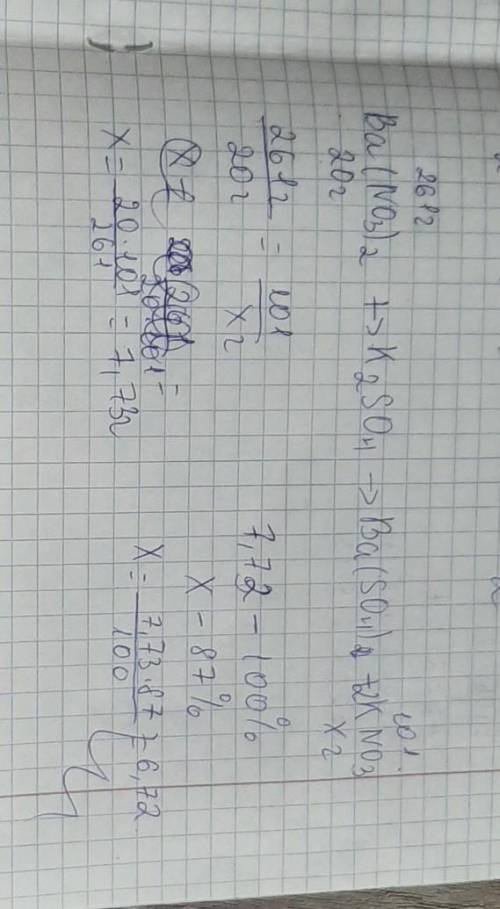 261г 101
Ba(NO3)2 + K2SO4 → Ba(SO4) + 2KNO3
20г xг
261г / 20г = 101 / xг
x = 20·101 / 261 = 7,73г
7,7г - 100%
x - 87%
x = 7,73·87 / 100 = 6,7г